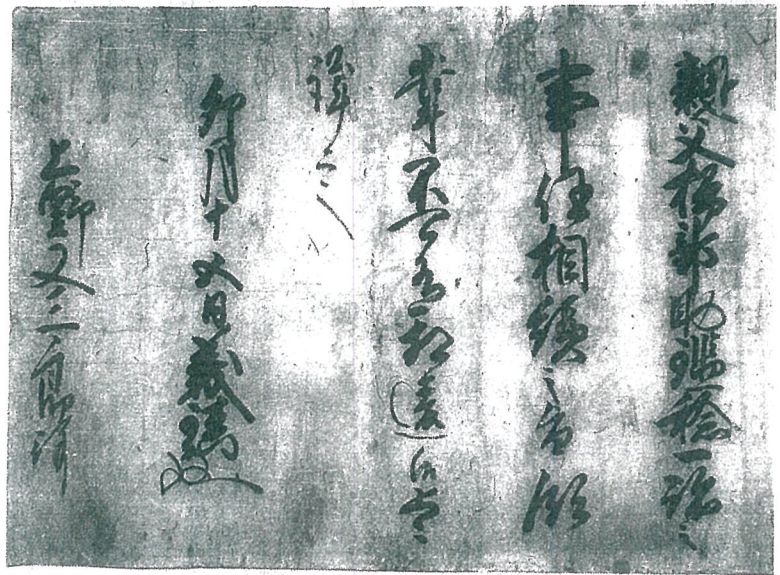 親父掃部助鑑一跡之
事任相續之旨領
掌不可有相違候恐々
謹言
卯月十五日 義鎮
上野又三郎殿